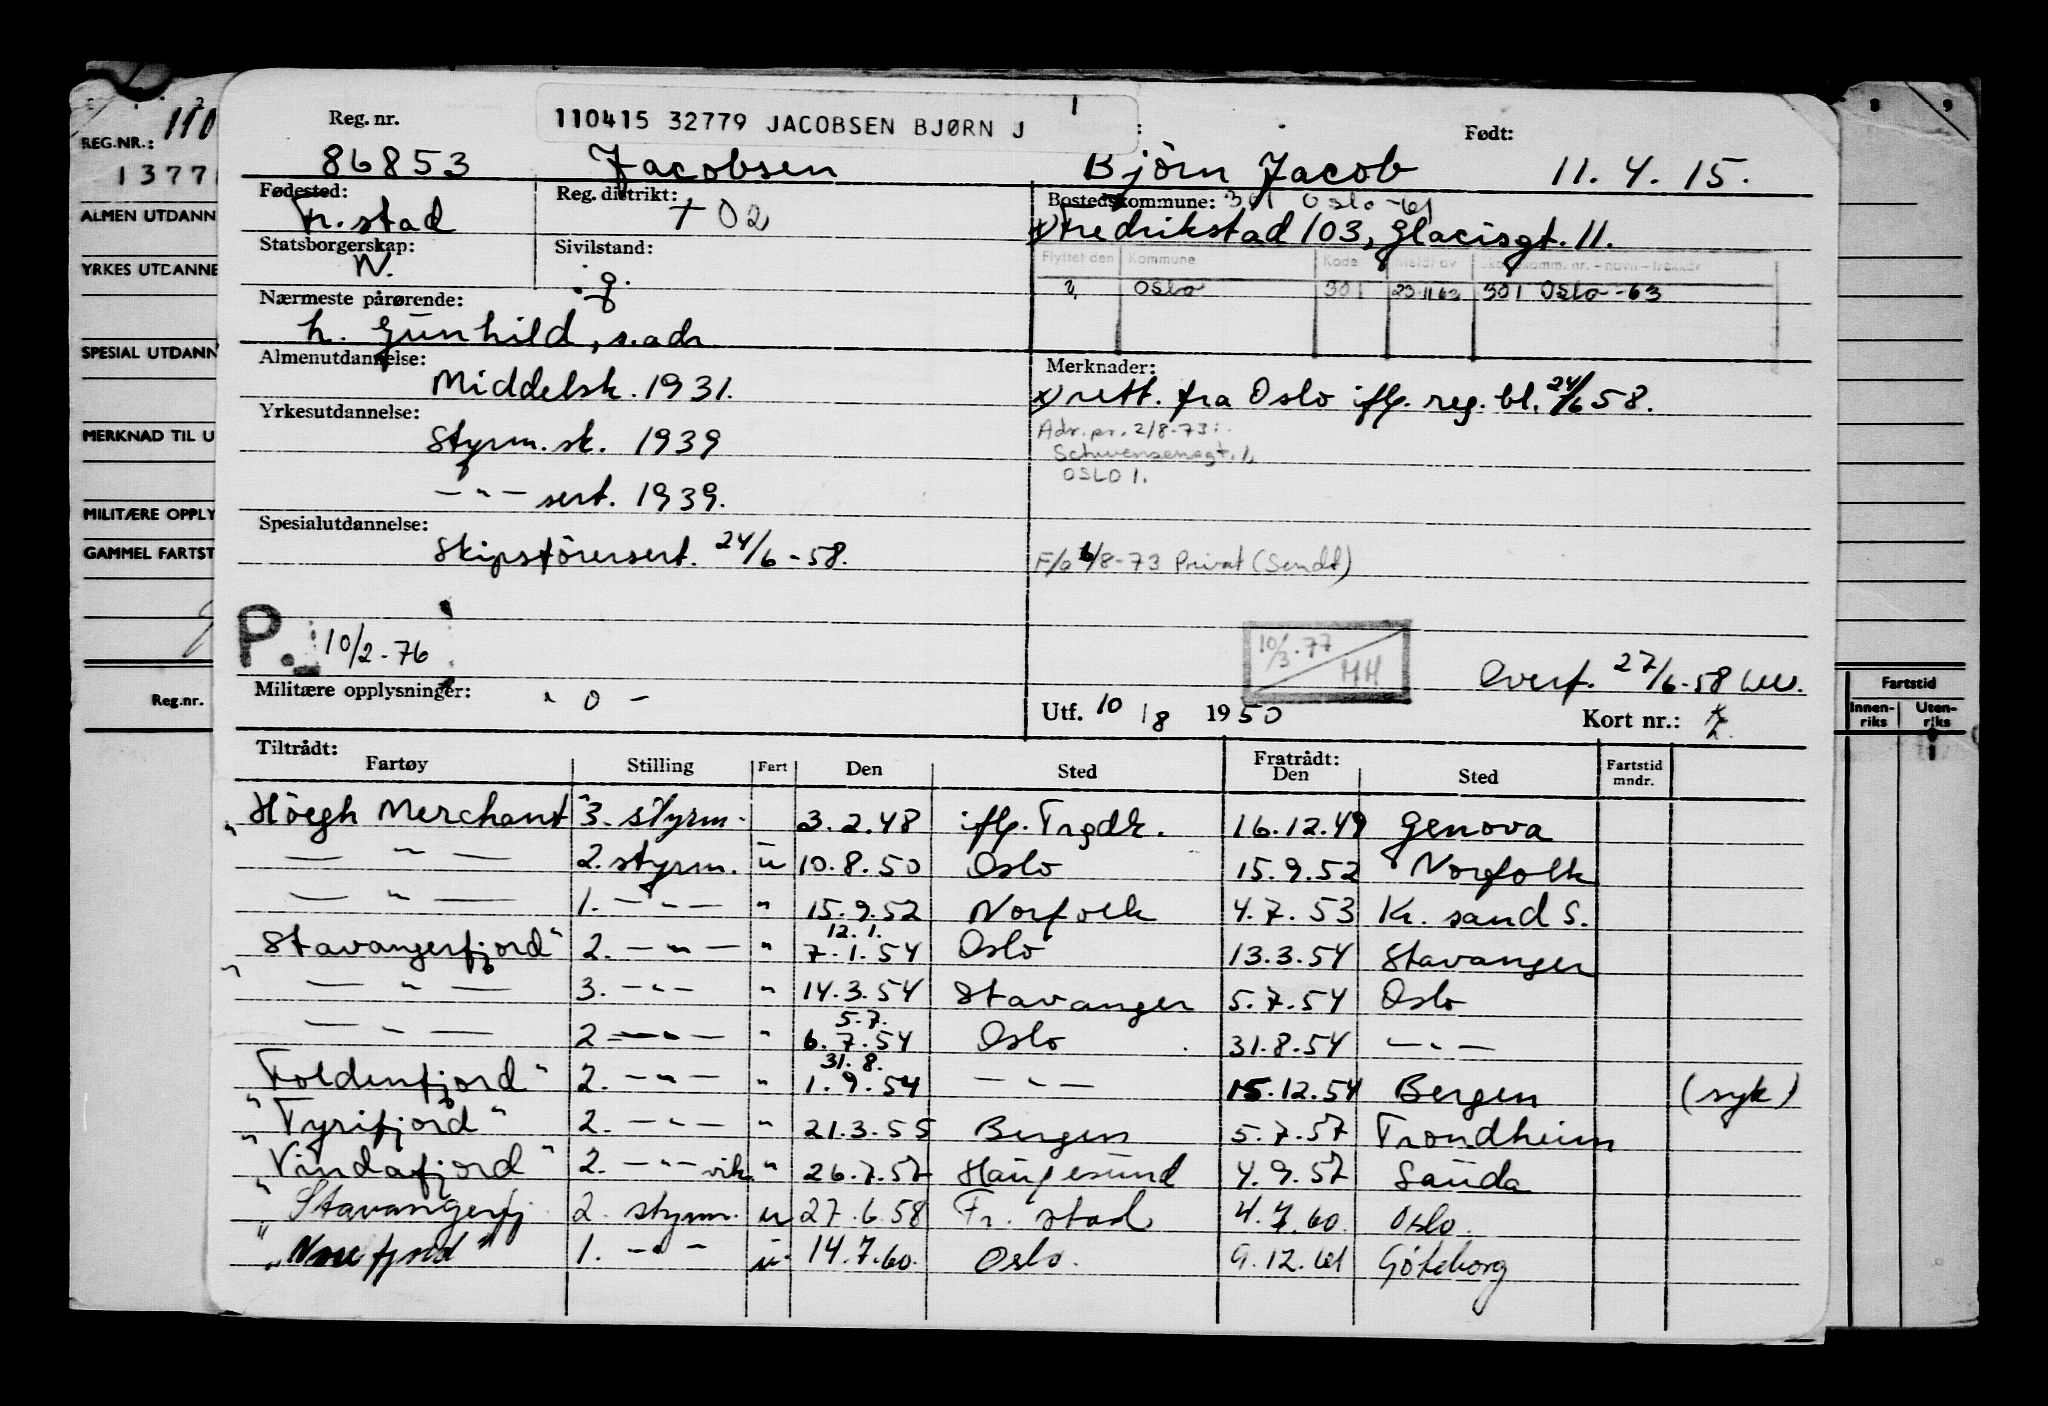 REG.NR.: 110
1377
ALMEN UTDANN
YRKES UTDANNE
SPESIAL UTDANN
MERKNAD TIL U
MILITÆRE OPPLY
GAMMEL FARTST
Reg.nr.
8 9
Fartstid
Innen-riks Uten-riks
110415 32779 JACOBSEN BJØRN J
Reg. nr. Født:
86853 Jacobsen Björn Jacob 11.4.15.
Fødested: Reg. distrikt: Bostedskommune: 301 Oslo -61
Fr.stad + 02 x) Fredrikstad 103, Glacisgt. 11.
Statsborgerskap: Sivilstand:
N. g.
Flyttet den Kommune Kode Meldt av Skattekomm. nr. - navn - trekkår
Oslo 301 23.11.63 301 Oslo -63
Nærmeste pårørende:
h. Gunhild, s.adr
Almenutdannelse: Merknader:
Middelsk. 1931. x) rett. fra Oslo ifl. reg. bl. 24/6 58.
Yrkesutdannelse: Adr. pr. 2/8-73:
Styrm.sk. 1939 Schwensensgt. 1,
OSLO 1.
— " — sert. 1939.
Spesialutdannelse:
Skipsførersert. 24/6-58. F/o 6/8-73 Privat (Sendt)
P. 10/2-76
10/3.77
HH
Overf. 27/6-58
Militære opplysninger: - 0 -
Utf. 10/8 1950 Kort nr.: 2.
Tiltrådt: Fratrådt:
Fartøy Stilling Fart Den Sted Den Sted Fartstid mndr.
"Höegh Merchant" 3. styrm. 3.2.48 ifl. Trgdk. 16.12.49 Genova
— " — 2. styrm. u 10.8.50 Oslo 15.9.52 Norfolk
— " — 1. — " — " 15.9.52 Norfolk 4.7.53 Kr. sand S.
12.1.
"Stavangerfjord" 2. — " — " 7.1.54 Oslo 13.3.54 Stavanger
— " — 3. — " — " 14.3.54 Stavanger 5.7.54 Oslo
5.7.
— " — 2. — " — " 6.7.54 Oslo 31.8.54 — " —
31.8.
"Foldenfjord" 2. — " — " 1.9.54 — " — 15.12.54 Bergen (syk)
"Tyrifjord" 2. — " — " 21.3.55 Bergen 5.7.57 Trondheim
"Vindafjord" 2. — " — vik. " 26.7.57 Haugesund 4.9.57 Sauda
"Stavangerfj. 2. styrm. u 27.6.58 Fr. stad 4.7.60. Oslo.
1. — " — u 14.7.60. Oslo. 9.12.61 Göteborg